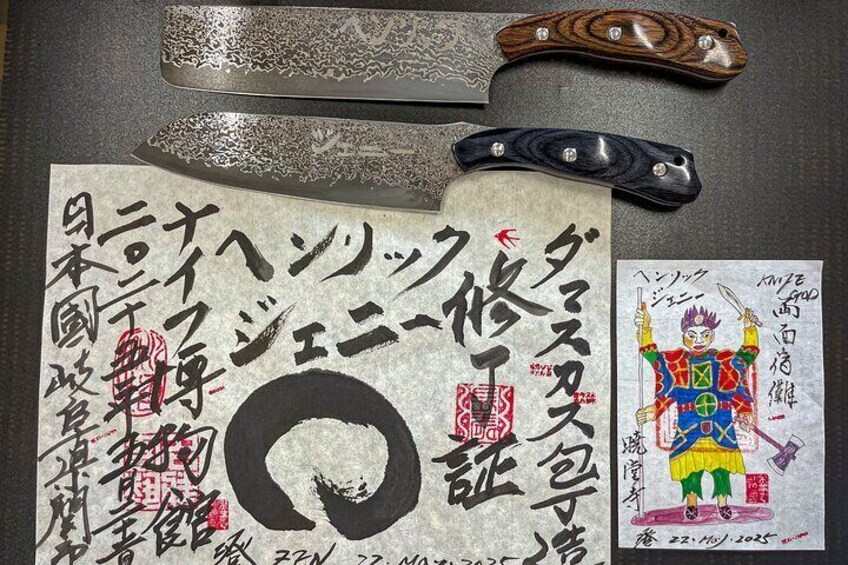 ヘンリック
ジェニー
ダマスカス包丁造
修了証
ヘンリック
ジェニー
ナイフ博物館
二〇二十五年五月二
日本國岐阜県関市
ZEN 22. MAY. 2025
ヘンリック
ジェニー
KNIFE
GOD
両面宿儺
暁堂寺
22. MAY. 2025